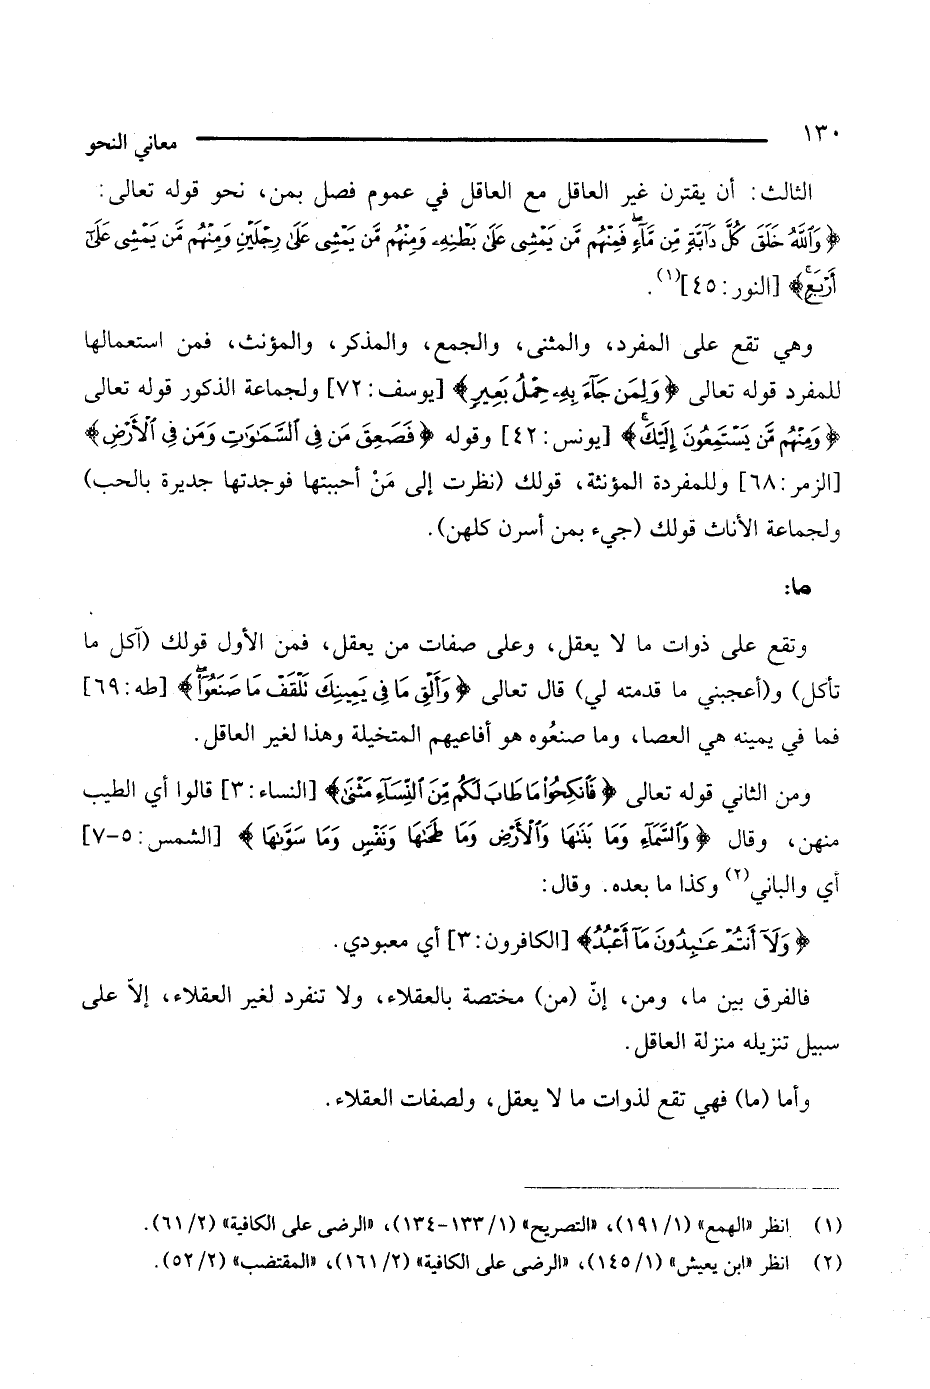 ١٣٠
معاني النحو
الثالث: أن يقترن غير العاقل مع العاقل في عموم فصل بمن، نحو قوله تعالى:
﴿وَٱللَّهُ خَلَقَ كُلَّ دَآبَّةٍ مِّن مَّآءٍۖ فَمِنْهُم مَّن يَمْشِى عَلَىٰ بَطْنِهِۦ وَمِنْهُم مَّن يَمْشِى عَلَىٰ رِجْلَيْنِ وَمِنْهُم مَّن يَمْشِى عَلَىٰٓ
أَرْبَعٍۚ﴾ [النور: ٤٥](١).
وهي تقع على المفرد، والمثنى، والجمع، والمذكر، والمؤنث، فمن استعمالها
للمفرد قوله تعالى ﴿وَلِمَن جَآءَ بِهِۦ حِمْلُ بَعِيرٍ﴾ [يوسف: ٧٢] ولجماعة الذكور قوله تعالى
﴿وَمِنْهُم مَّن يَسْتَمِعُونَ إِلَيْكَۚ﴾ [يونس: ٤٢] وقوله ﴿فَصَعِقَ مَن فِى ٱلسَّمَٰوَٰتِ وَمَن فِى ٱلْأَرْضِ﴾
[الزمر: ٦٨] وللمفردة المؤنثة، قولك (نظرت إلى مَنْ أحببتها فوجدتها جديرة بالحب)
ولجماعة الأناث قولك (جيء بمن أسرن كلهن).
ما:
وتقع على ذوات ما لا يعقل، وعلى صفات من يعقل، فمن الأول قولك (آكل ما
تأكل) و(أعجبني ما قدمته لي) قال تعالى ﴿وَأَلْقِ مَا فِى يَمِينِكَ تَلْقَفْ مَا صَنَعُوٓا۟ۖ﴾ [طه: ٦٩]
فما في يمينه هي العصا، وما صنعُوه هو أفاعيهم المتخيلة وهذا لغير العاقل.
ومن الثاني قوله تعالى ﴿فَٱنكِحُوا۟ مَا طَابَ لَكُم مِّنَ ٱلنِّسَآءِ مَثْنَىٰ﴾ [النساء: ٣] قالوا أي الطيب
منهن، وقال ﴿وَٱلسَّمَآءِ وَمَا بَنَىٰهَا وَٱلْأَرْضِ وَمَا طَحَىٰهَا وَنَفْسٍ وَمَا سَوَّىٰهَا﴾ [الشمس: ٥-٧]
أي والباني(٢) وكذا ما بعده. وقال:
﴿وَلَآ أَنتُمْ عَٰبِدُونَ مَآ أَعْبُدُ﴾ [الكافرون: ٣] أي معبودي.
فالفرق بين ما، ومن، إنّ (من) مختصة بالعقلاء، ولا تنفرد لغير العقلاء، إلاّ على
سبيل تنزيله منزلة العاقل.
وأما (ما) فهي تقع لذوات ما لا يعقل، ولصفات العقلاء.
(١) انظر «الهمع» (١/١٩١)، «التصريح» (١/١٣٣-١٣٤)، «الرضى على الكافية» (٢/٦١).
(٢) انظر «ابن يعيش» (١/١٤٥)، «الرضى على الكافية» (٢/١٦١)، «المقتضب» (٢/٥٢).